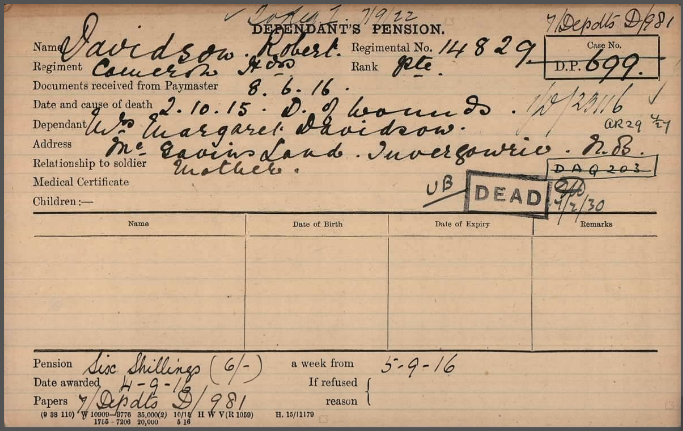 7/9/22
7/Depdts D/981
DEPENDANT'S PENSION.
Name Davidson. Robert. Regimental No. 14829.
Case No.
D.P. 699.
Regiment Cameron Hdrs Rank Pte.
Documents received from Paymaster 8.6.16.
Date and cause of death 2.10.15. D. of wounds.
Dependant Mrs Margaret Davidson.
AR29
Address McGavins Land. Invergowrie. N.B.
Relationship to soldier Mother.
DAQ203
Medical Certificate
UB DEAD
Children:—
Name Date of Birth Date of Expiry Remarks
Pension Six Shillings (6/-) a week from 5-9-16
Date awarded 4-9-16 If refused
Papers 7/Depdts D/981 reason
(9 38 110) W 10909—3776 35,000(2) 10/15 H W V(R 1059) H. 15/11179
1715—7206 20,000 5 16